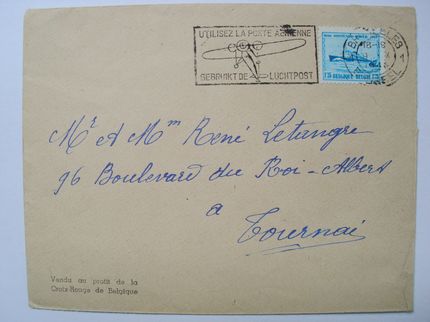 UTILISEZ LA POSTE AERIENNE
GEBRUIKT DE LUCHTPOST
BELGIQUE BELGIE
1
Mr & Mm René Letangre
96 Boulevard du Roi-Albert
a
Tournai
Vendu au profit de la
Croix-Rouge de Belgique